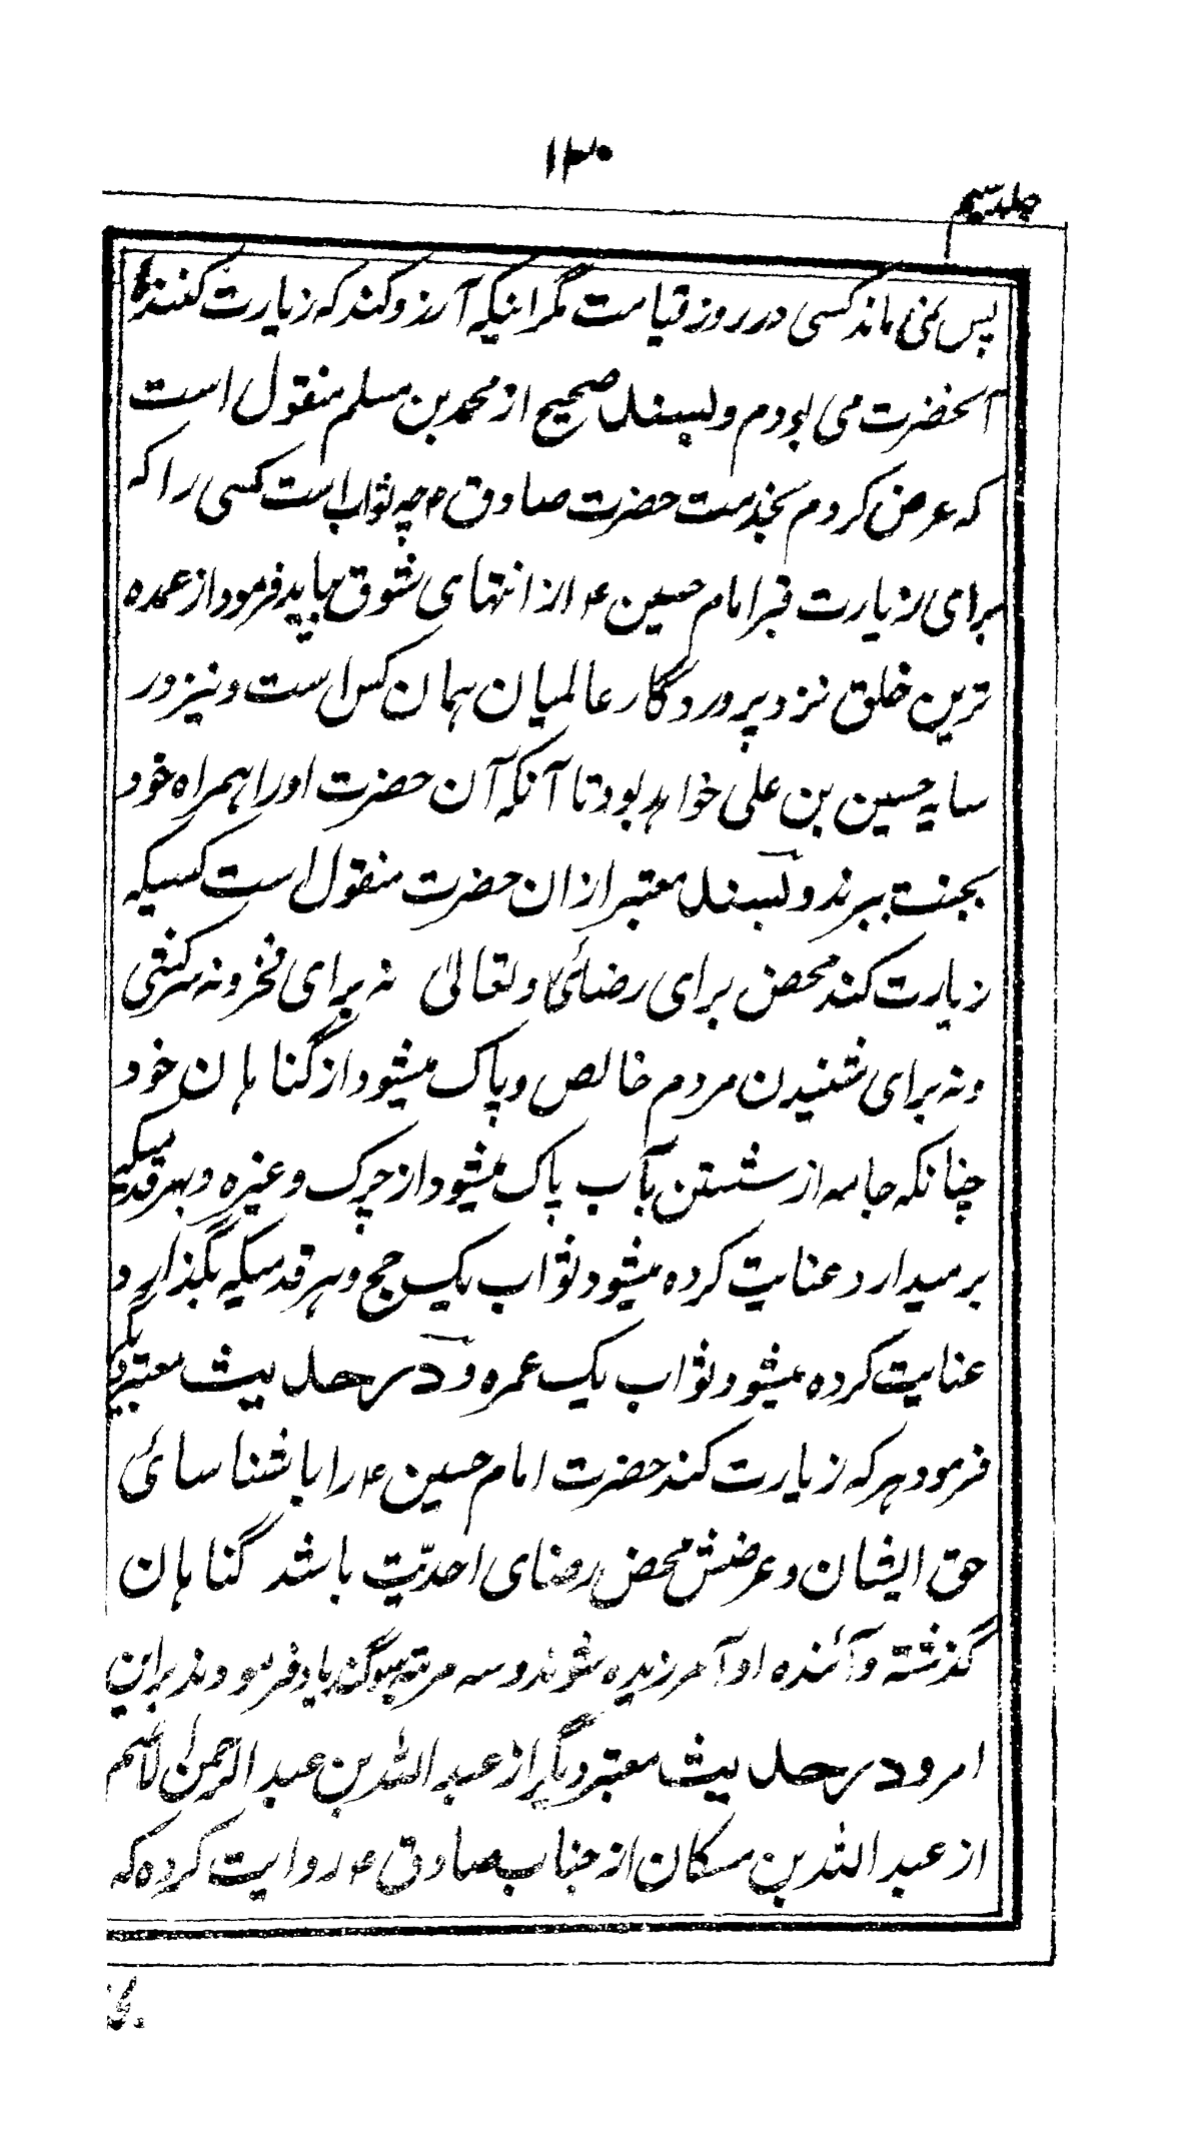 ۱۲۰
جلد سیم
پس نمی ماند کسی در روز قیامت مگر اینکه آرزو کند که زیارت کننده
آنحضرت می بودم و بسند صحیح از محمد بن مسلم منقول است
که عرض کردم بخدمت حضرت صادق ۴ چه ثواب است کسی را که
برای زیارت قبر امام حسین ۴ از انتهای شوق بیاید فرمود از عمده
ترین خلق نزد پروردگار عالمیان همان کس است و نیز در
سایه حسین بن علی خواهد بود تا آنکه آن حضرت او را همراه خود
بجنت ببرند و بسند معتبر از ان حضرت منقول است کسیکه
زیارت کند محض برای رضائی او تعالیٰ نه برای فخر و نه سرکشی
و نه برای شنیدن مردم خالص و پاک میشود از گناهان خود
چنانکه جامه از شستن بآب پاک میشود از چرک و غیره و بهر قدمیکه
بر میدارد عنایت کرده میشود ثواب یک حج و هر قدمیکه بگذارد
عنایت کرده میشود ثواب یک عمره و در حدیث معتبر دیگر
فرمود هر که زیارت کند حضرت امام حسین ۴ را با شناسائی
حق ایشان و غرضش محض رضای احدیّت باشد گناهان
گذشته و آئنده او آمرزیده شوند و سه مرتبه سوگند یاد فرمودند براین
امر و در حدیث معتبر دیگر از عبد الله بن عبد الرحمن الاصم
از عبد الله بن مسکان از جناب صادق ۴ روایت کرده که